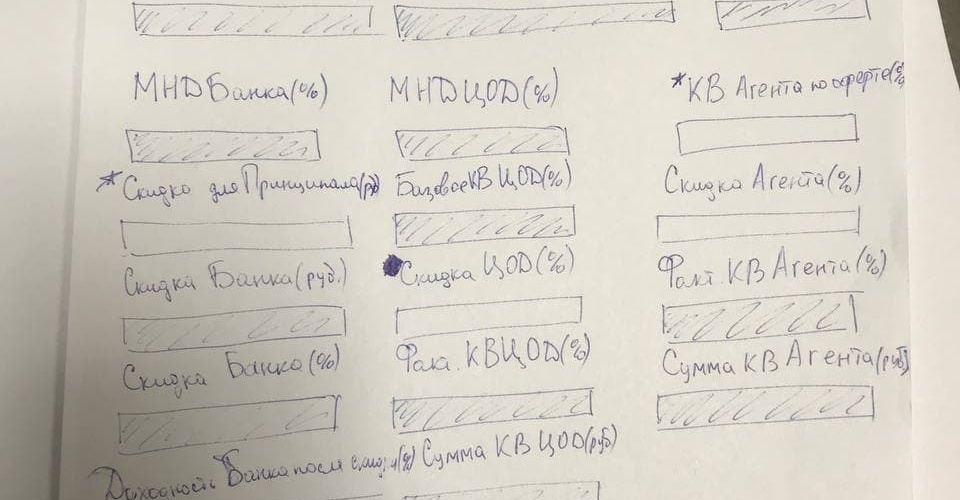 МНД Банка (%) МНД ЦОД (%) *КВ Агента по оферте (%
*Скидка для Принципала (рб) Базовое КВ ЦОД (%) Скидка Агента (%)
Скидка Банка (руб.) Скидка ЦОД (%) Факт. КВ Агента (%)
Скидка Банка (%) Факт. КВ ЦОД (%) Сумма КВ Агента (руб)
Доходность Банка после скидки (%) Сумма КВ ЦОД (руб)